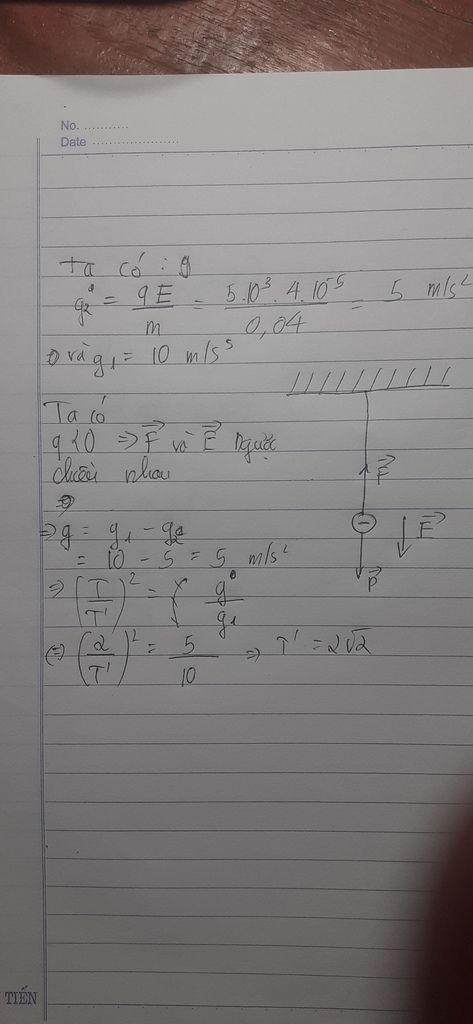 No. ...........
Date .....................
Ta có : g
g₂ = qE/m = 5.10³ . 4.10⁻⁵/0,04 = 5 m/s²
và g₁ = 10 m/s⁵
Ta có
q<0 ⇒ F⃗ và E⃗ ngược
chiều nhau
⇒ g = g₁ - g₂
= 10 - 5 = 5 m/s²
⇒ (T/T')² = g/g₁
(=) (2/T')² = 5/10 ⇒ T' = 2√2
F⃗
−
E⃗
P⃗
TIẾN